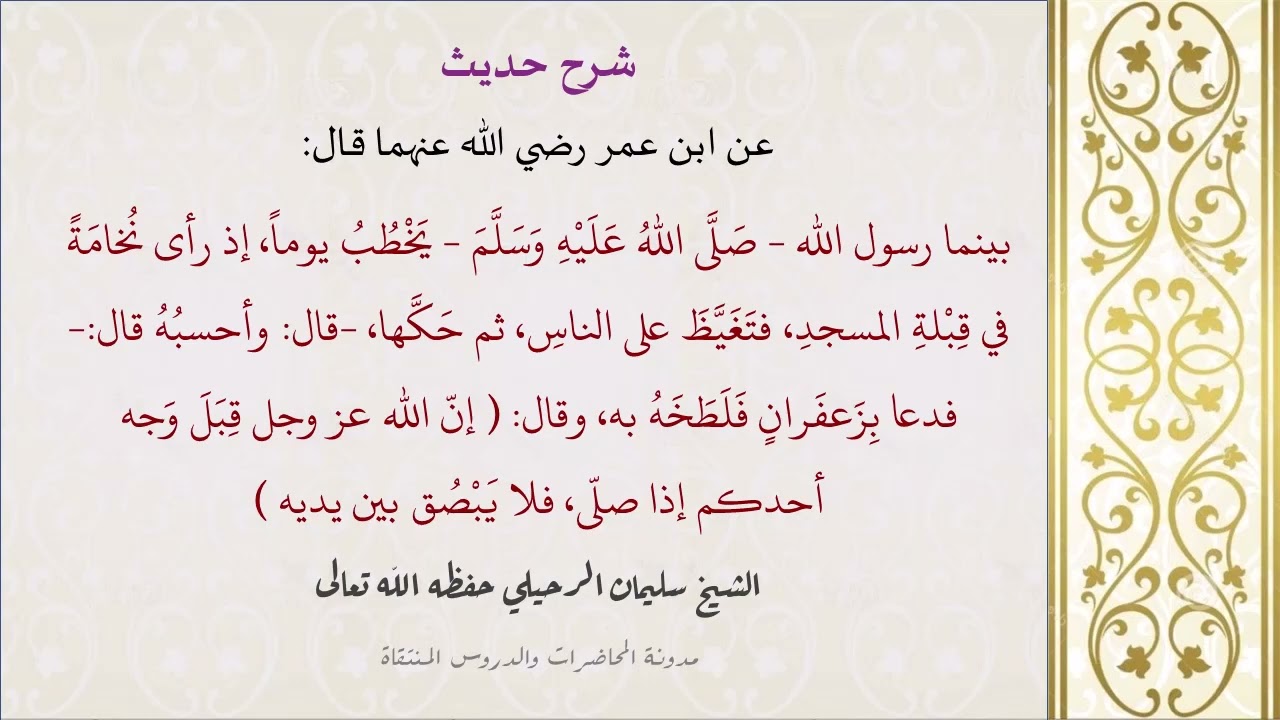 شرح حديث
عن ابن عمر رضي الله عنهما قال:
بينما رسول الله - صَلَّى اللهُ عَلَيْهِ وَسَلَّمَ - يَخْطُبُ يوماً، إذ رأى نُخامَةً
في قِبْلةِ المسجدِ، فتَغَيَّظَ على الناسِ، ثم حَكَّها، -قال: وأحسبُهُ قال:-
فدعا بِزَعفَرانٍ فَلَطَخَهُ به، وقال: ( إنّ الله عز وجل قِبَلَ وَجه
أحدكم إذا صلّى، فلا يَبْصُق بين يديه )
الشيخ سليمان الرحيلي حفظه الله تعالى
مدونة المحاضرات والدروس المنتقاة